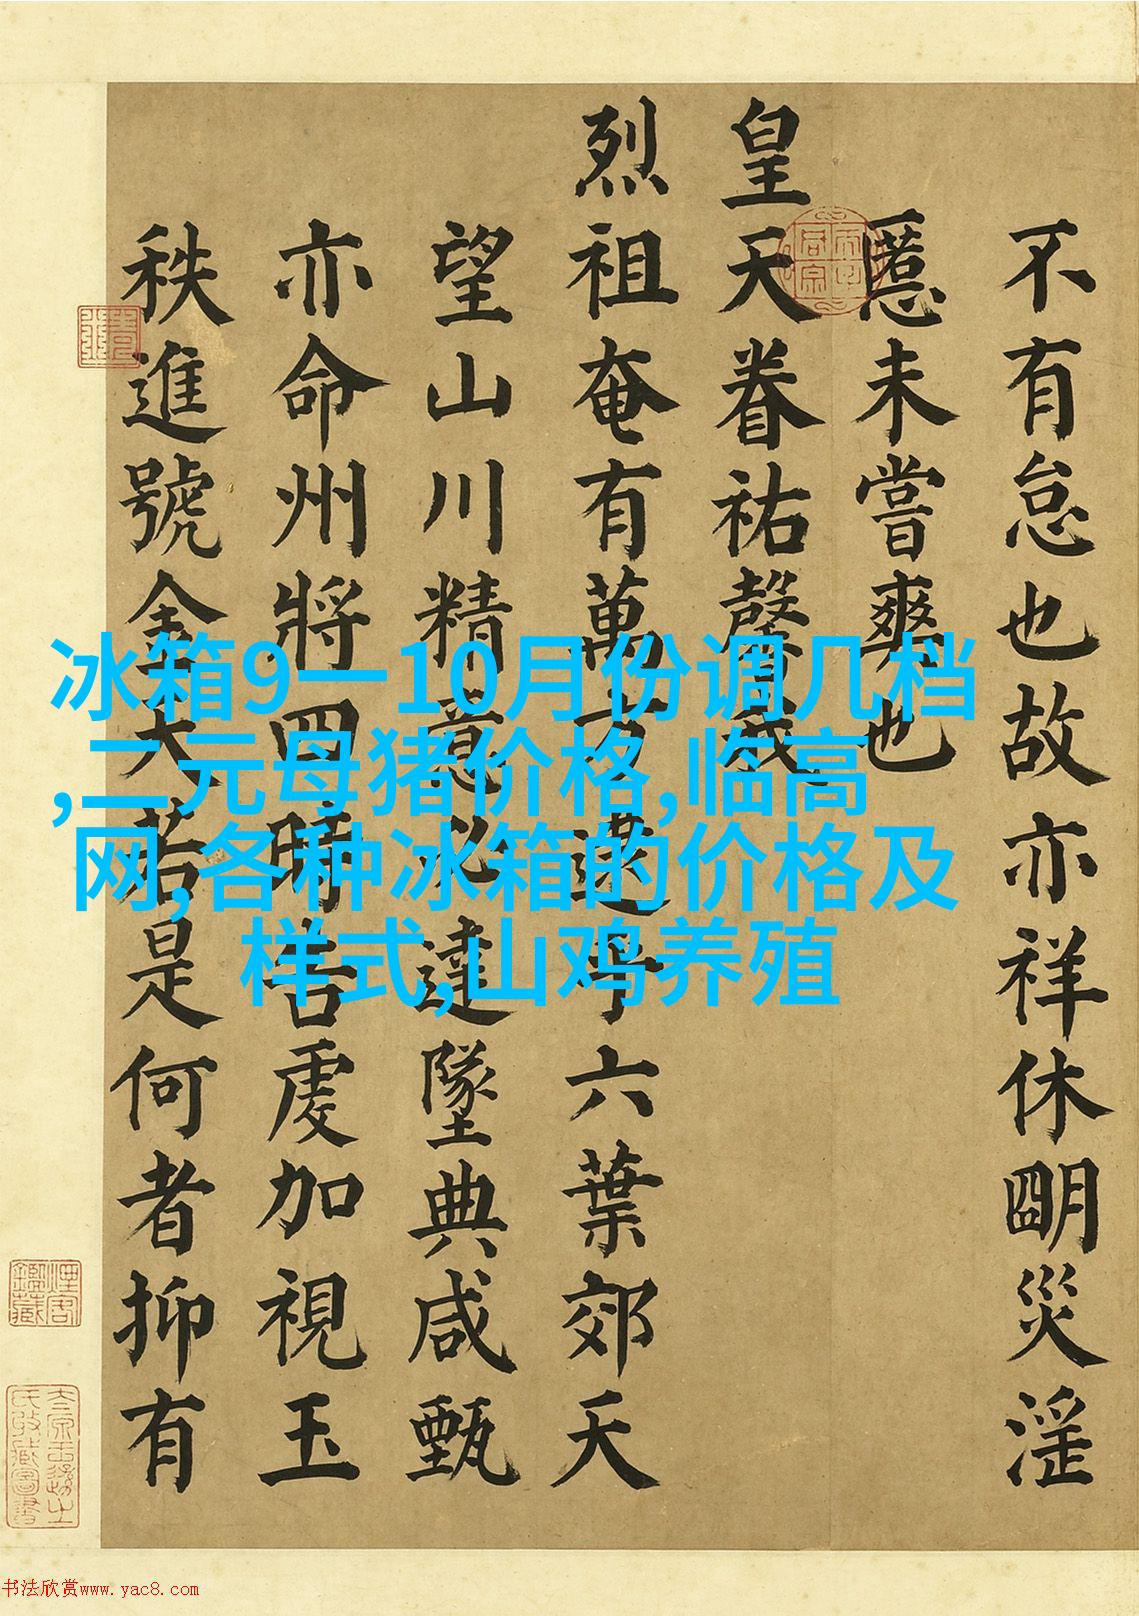 不有怠也故亦祥休明災淫
慝未嘗爽也
皇天眷祐馨我
烈祖奄有萬方逮乎六葉郊天
望山川精意必達墜典咸甄
亦命州將四時告虔加視王
秩進號金天若是何者抑有
冰箱9一10月份调几档
,二元母猪价格,临高
网,各种冰箱的价格及
样式,山鸡养殖
书法欣赏www.yac8.com